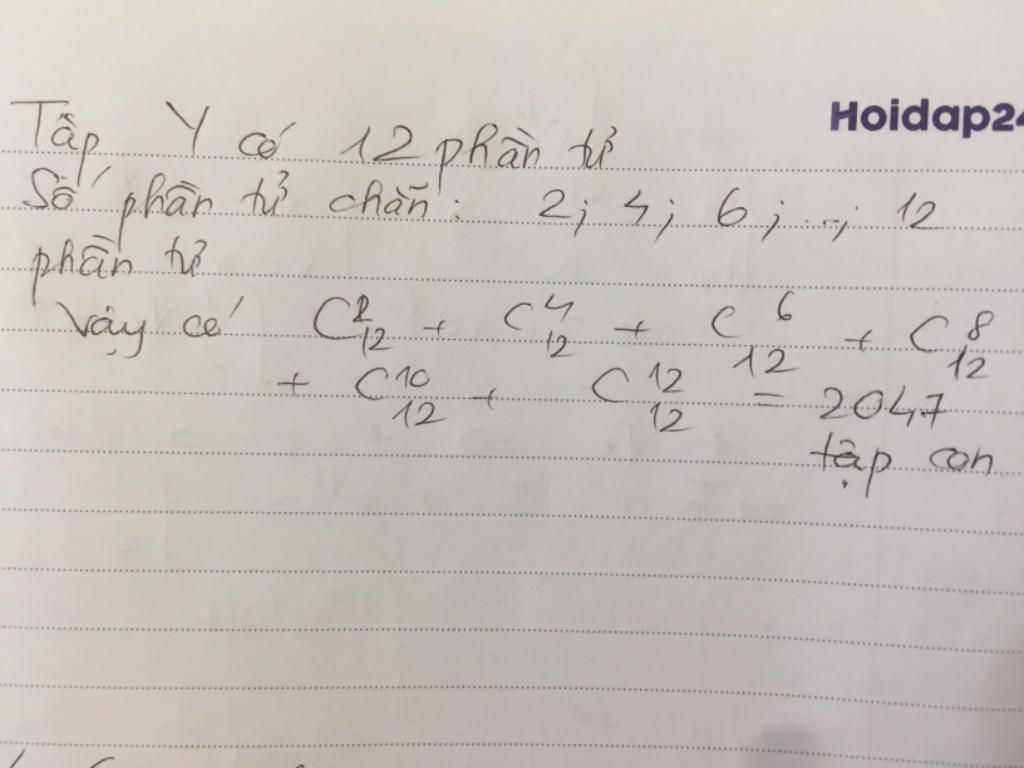 Hoidap24
Tập Y có 12 phần tử
Số phần tử chẵn: 2; 4; 6; ...; 12
phần tử
Vậy có C²₁₂ + C⁴₁₂ + C⁶₁₂ + C⁸₁₂
+ C¹⁰₁₂ + C¹²₁₂ = 2047
tập con